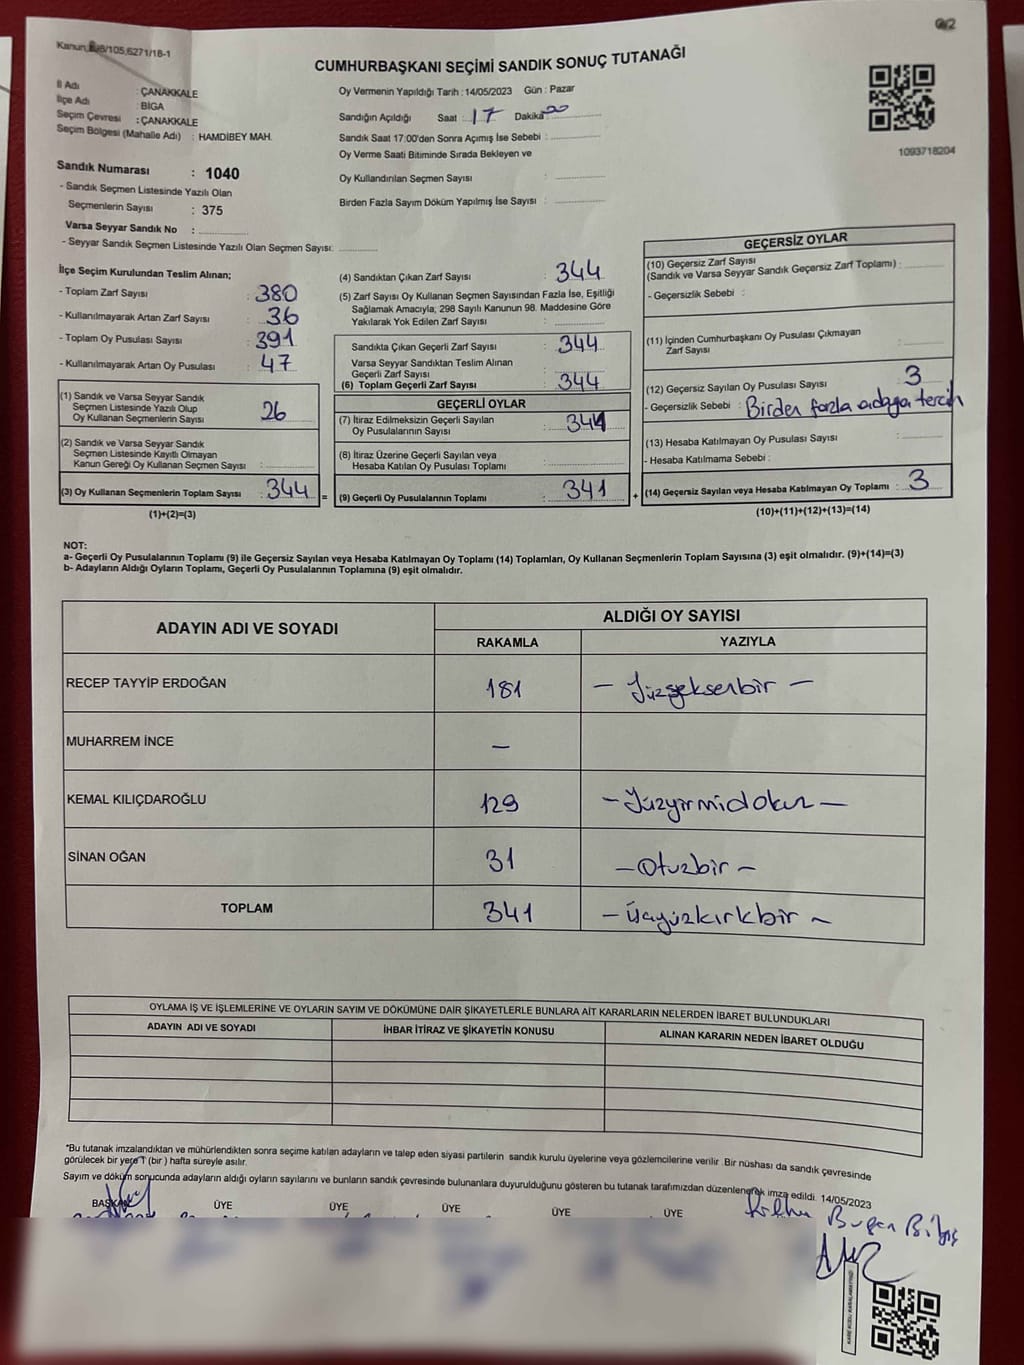 0/2
CUMHURBAŞKANI SEÇİMİ SANDIK SONUÇ TUTANAĞI
İl Adı : ÇANAKKALE
İlçe Adı : BİGA
Seçim Çevresi : ÇANAKKALE
Seçim Bölgesi (Mahalle Adı) : HAMDİBEY MAH.
Oy Vermenin Yapıldığı Tarih : 14/05/2023 Gün : Pazar
Sandığın Açıldığı Saat : 17 Dakika
Sandık Saat 17:00'den Sonra Açımış İse Sebebi :
Oy Verme Saati Bitiminde Sırada Bekleyen ve
Oy Kullandırılan Seçmen Sayısı :
Birden Fazla Sayım Döküm Yapılmış İse Sayısı :
1093718204
Sandık Numarası : 1040
- Sandık Seçmen Listesinde Yazılı Olan
Seçmenlerin Sayısı : 375
Varsa Seyyar Sandık No :
- Seyyar Sandık Seçmen Listesinde Yazılı Olan Seçmen Sayısı:
İlçe Seçim Kurulundan Teslim Alınan;
- Toplam Zarf Sayısı : 380
- Kullanılmayarak Artan Zarf Sayısı : 36
- Toplam Oy Pusulası Sayısı : 391
- Kullanılmayarak Artan Oy Pusulası : 47
(1) Sandık ve Varsa Seyyar Sandık
Seçmen Listesinde Yazılı Olup
Oy Kullanan Seçmenlerin Sayısı : 26
(2) Sandık ve Varsa Seyyar Sandık
Seçmen Listesinde Kayıtlı Olmayan
Kanun Gereği Oy Kullanan Seçmen Sayısı :
(3) Oy Kullanan Seçmenlerin Toplam Sayısı : 344 =
(1)+(2)=(3)
(4) Sandıktan Çıkan Zarf Sayısı : 344
(5) Zarf Sayısı Oy Kullanan Seçmen Sayısından Fazla İse, Eşitliği
Sağlamak Amacıyla, 298 Sayılı Kanunun 98. Maddesine Göre
Yakılarak Yok Edilen Zarf Sayısı :
Sandıkta Çıkan Geçerli Zarf Sayısı : 344
Varsa Seyyar Sandıktan Teslim Alınan
Geçerli Zarf Sayısı :
(6) Toplam Geçerli Zarf Sayısı : 344
GEÇERLİ OYLAR
(7) İtiraz Edilmeksizin Geçerli Sayılan
Oy Pusulalarının Sayısı :
(8) İtiraz Üzerine Geçerli Sayılan veya
Hesaba Katılan Oy Pusulası Toplamı :
(9) Geçerli Oy Pusulalarının Toplamı : 341 +
GEÇERSİZ OYLAR
(10) Geçersiz Zarf Sayısı
(Sandık ve Varsa Seyyar Sandık Geçersiz Zarf Toplamı) :
- Geçersizlik Sebebi :
(11) İçinden Cumhurbaşkanı Oy Pusulası Çıkmayan
Zarf Sayısı :
(12) Geçersiz Sayılan Oy Pusulası Sayısı : 3
- Geçersizlik Sebebi : Birden fazla adaya tercih
(13) Hesaba Katılmayan Oy Pusulası Sayısı :
- Hesaba Katılmama Sebebi :
(14) Geçersiz Sayılan veya Hesaba Katılmayan Oy Toplamı : 3
(10)+(11)+(12)+(13)=(14)
NOT:
a- Geçerli Oy Pusulalarının Toplamı (9) ile Geçersiz Sayılan veya Hesaba Katılmayan Oy Toplamı (14) Toplamları, Oy Kullanan Seçmenlerin Toplam Sayısına (3) eşit olmalıdır. (9)+(14)=(3)
b- Adayların Aldığı Oyların Toplamı, Geçerli Oy Pusulalarının Toplamına (9) eşit olmalıdır.
ADAYIN ADI VE SOYADI ALDIĞI OY SAYISI
RAKAMLA YAZIYLA
RECEP TAYYİP ERDOĞAN 181 - Yüzseksenbir -
MUHARREM İNCE -
KEMAL KILIÇDAROĞLU 129 - Yüzyirmidokuz -
SİNAN OĞAN 31 - Otuzbir -
TOPLAM 341 - Üçyüzkırkbir -
OYLAMA İŞ VE İŞLEMLERİNE VE OYLARIN SAYIM VE DÖKÜMÜNE DAİR ŞİKAYETLERLE BUNLARA AİT KARARLARIN NELERDEN İBARET BULUNDUKLARI
ADAYIN ADI VE SOYADI İHBAR İTİRAZ VE ŞİKAYETİN KONUSU ALINAN KARARIN NEDEN İBARET OLDUĞU
*Bu tutanak imzalandıktan ve mühürlendikten sonra seçime katılan adayların ve talep eden siyasi partilerin sandık kurulu üyelerine veya gözlemcilerine verilir. Bir nüshası da sandık çevresinde
görülecek bir yere 1 (bir) hafta süreyle asılır.
Sayım ve döküm sonucunda adayların aldığı oyların sayılarını ve bunların sandık çevresinde bulunanlara duyurulduğunu gösteren bu tutanak tarafımızdan düzenlenerek imza edildi. 14/05/2023
BAŞKAN ÜYE ÜYE ÜYE ÜYE ÜYE